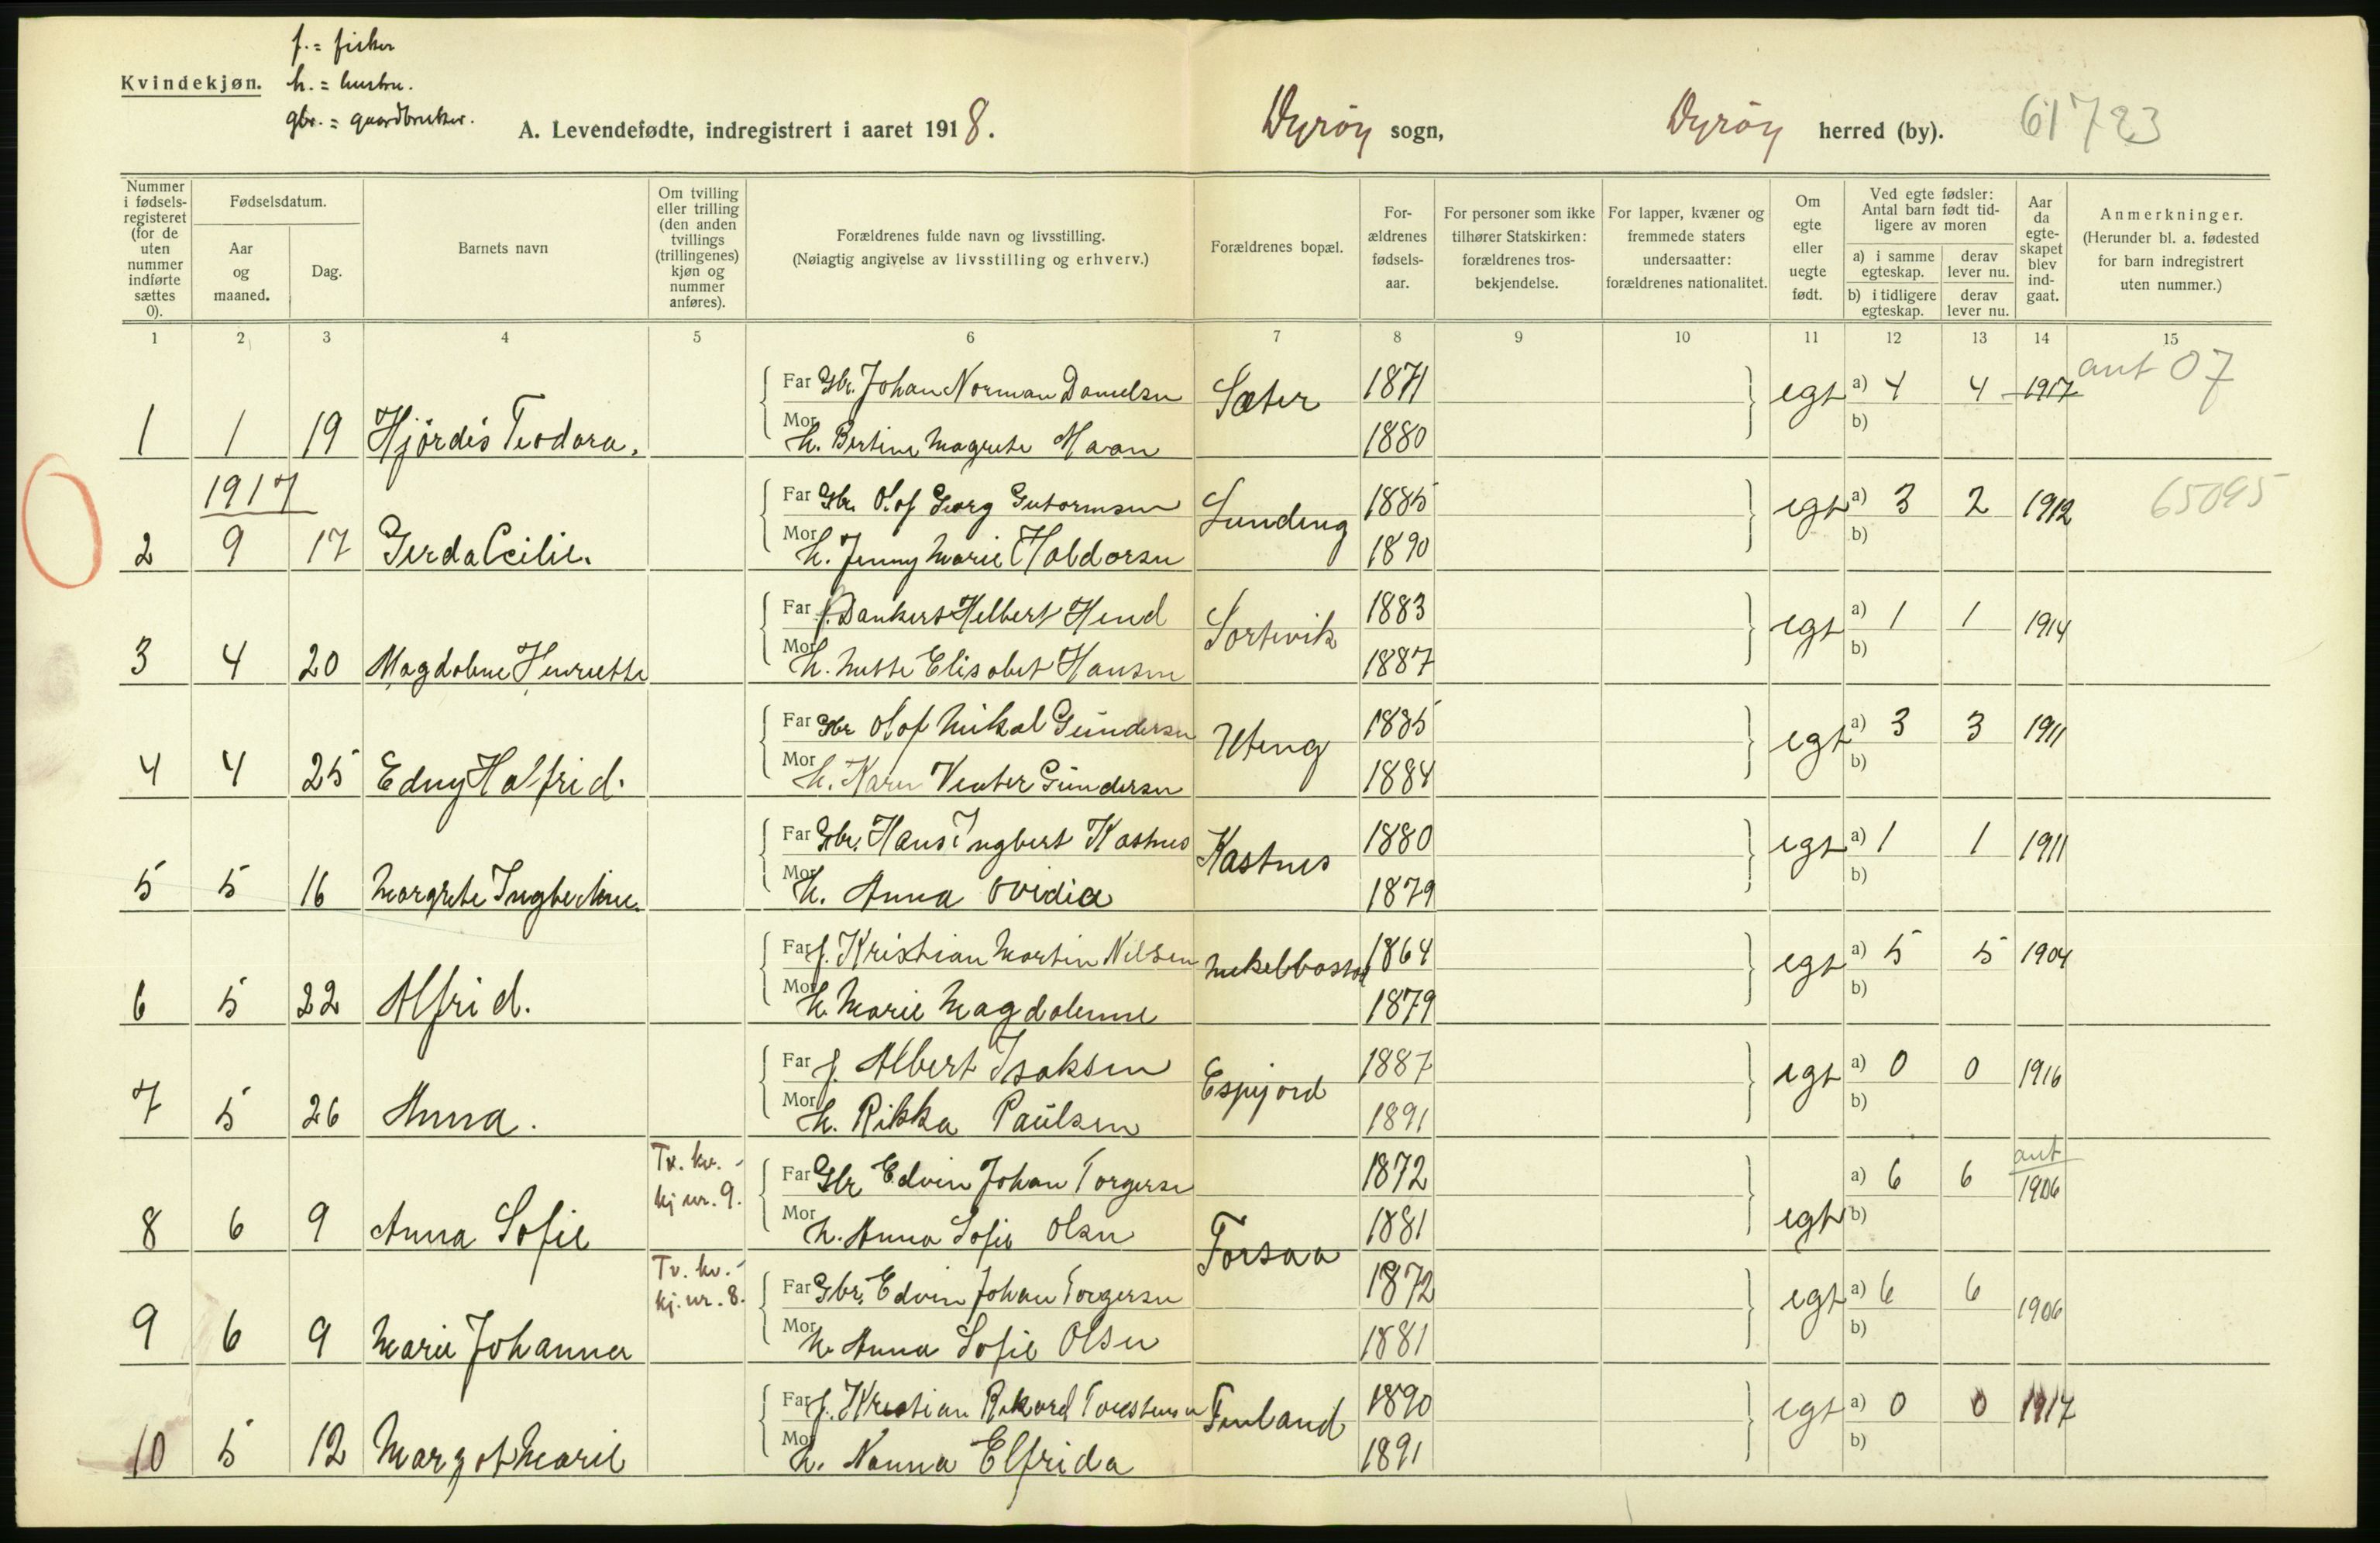 f. = fisker
Kvindekjøn. h. = hustru.
gbr. = gaardbruker.
A. Levendefødte, indregistrert i aaret 1918. Dyrøy sogn, Dyrøy herred (by). 61723
Nummer i fødsels-registeret (for de uten nummer indførte sættes 0).
Fødselsdatum.
Aar og maaned.
Dag.
Barnets navn
Om tvilling eller trilling (den anden tvillings (trillingenes) kjøn og nummer anføres).
Forældrenes fulde navn og livsstilling.
(Nøiagtig angivelse av livsstilling og erhverv.)
Forældrenes bopæl.
For-ældrenes fødsels-aar.
For personer som ikke tilhører Statskirken: forældrenes tros-bekjendelse.
For lapper, kvæner og fremmede staters undersaatter: forældrenes nationalitet.
Om egte eller uegte født.
Ved egte fødsler: Antal barn født tid-ligere av moren
a) i samme egteskap.
derav lever nu.
b) i tidligere egteskap.
derav lever nu.
Aar da egte-skapet blev ind-gaat.
Anmerkninger.
(Herunder bl. a. fødested for barn indregistrert uten nummer.)
1 2 3 4 5 6 7 8 9 10 11 12 13 14 15
Far Gbr. Johan Norman Danielsen Sæter 1871 egt a) 4 4 1917 ant 07
1 1 19 Hjördis Teodora. Mor h. Bertine Magrete 1880 b)
1917
Far Gbr. Olof Georg Gutormsen Lundeng 1885 egt a) 3 2 1912 65095
2 9 17 Gerda Cecilie. Mor h. Jenny Marie Haldorsen 1890 b)
Far f. Dankert Helbert Hend Sortevik 1883 egt a) 1 1 1914
3 4 20 Magdalene Henriette Mor h. Mette Elisabet Hansen 1887 b)
Far Gbr Olof Mikal Gundersen Uteng 1885 egt a) 3 3 1911
4 4 25 Edny Halfrid. Mor h. Karen Venter Gundersen 1884 b)
Far Gbr. Hans Ingbert Kastnes Kastnes 1880 egt a) 1 1 1911
5 5 16 Margrete Ingbertine. Mor h. Anna Ovidia 1879 b)
Far f. Kristian Martin Nilsen Mikelbostad 1864 egt a) 5 5 1904
6 5 22 Alfrid. Mor h. Marie Magdalenne 1879 b)
Far f. Albert Isaksen Espejord 1887 egt a) 0 0 1916
7 5 26 Anna. Mor h. Rikka Paulsen 1891 b)
Tv. kv.- kj nr. 9. Far Gbr Edvin Johan Torgersen 1872 a) 6 6 ant 1906
8 6 9 Anna Sofie Mor h. Anna Sofie Olsen Forsaa 1881 egt b)
Tv. kv.- kj. nr. 8. Far Gbr. Edvin Johan Torgersen 1872 egt a) 6 6 1906
9 6 9 Marie Johanna Mor h. Anna Sofie Olsen 1881 b)
Far f. Kristian Rikard Torstensen Finland 1890 egt a) 0 0 1917
10 5 12 Margot Marie Mor h. Nanna Elfrida 1891 b)